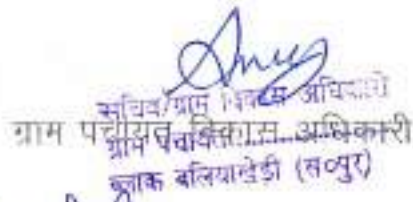 सचिव/ग्राम विकास अधिकारी
ग्राम पंचायत विकास अधिकारी
ग्राम पंचायत..................
ब्लाक बलियाखेड़ी (स०पुर)